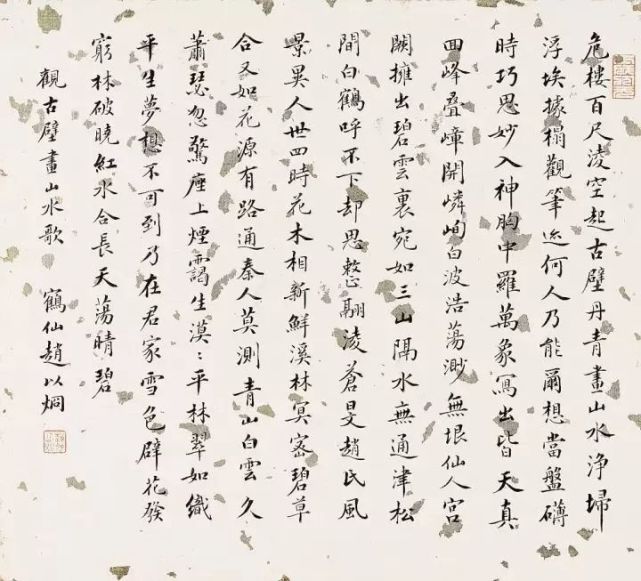 危樓百尺淩空起古壁丹青畫山水浄掃
浮埃據榻觀筆迹何人乃能爾想當盤礴
時巧思妙入神胸中羅萬象寫出皆天真
回峰叠嶂開嶙峋白波浩蕩渺無垠仙人宮
闕擁出碧雲裏宛如三山隔水無通津松
間白鶴呼不下却思整翮淩蒼旻趙氏風
景異人世四時花木相新鮮溪林冥密碧草
合又如花源有路通秦人莫測青山白雲久
蕭瑟忽驚座上煙靄生漠〻平林翠如織
平生夢想不可到乃在君家雪色壁花發
窮林破曉紅水合長天蕩晴碧
觀古壁畫山水歌 鶴仙趙以炯